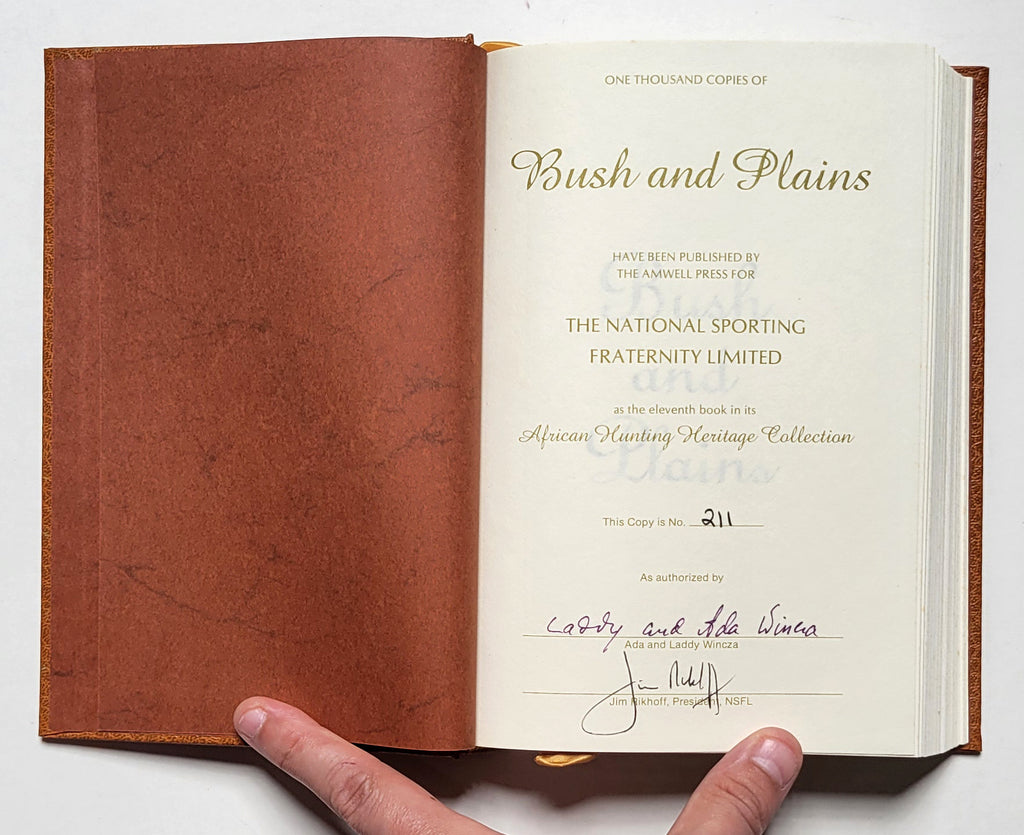 ONE THOUSAND COPIES OF
Bush and Plains
HAVE BEEN PUBLISHED BY
THE AMWELL PRESS FOR
THE NATIONAL SPORTING
FRATERNITY LIMITED
as the eleventh book in its
African Hunting Heritage Collection
This Copy is No. 211
As authorized by
Laddy and Ada Wincza
Ada and Laddy Wincza
Jim Rikhoff
Jim Rikhoff, President, NSFL
Bush
and
Plains